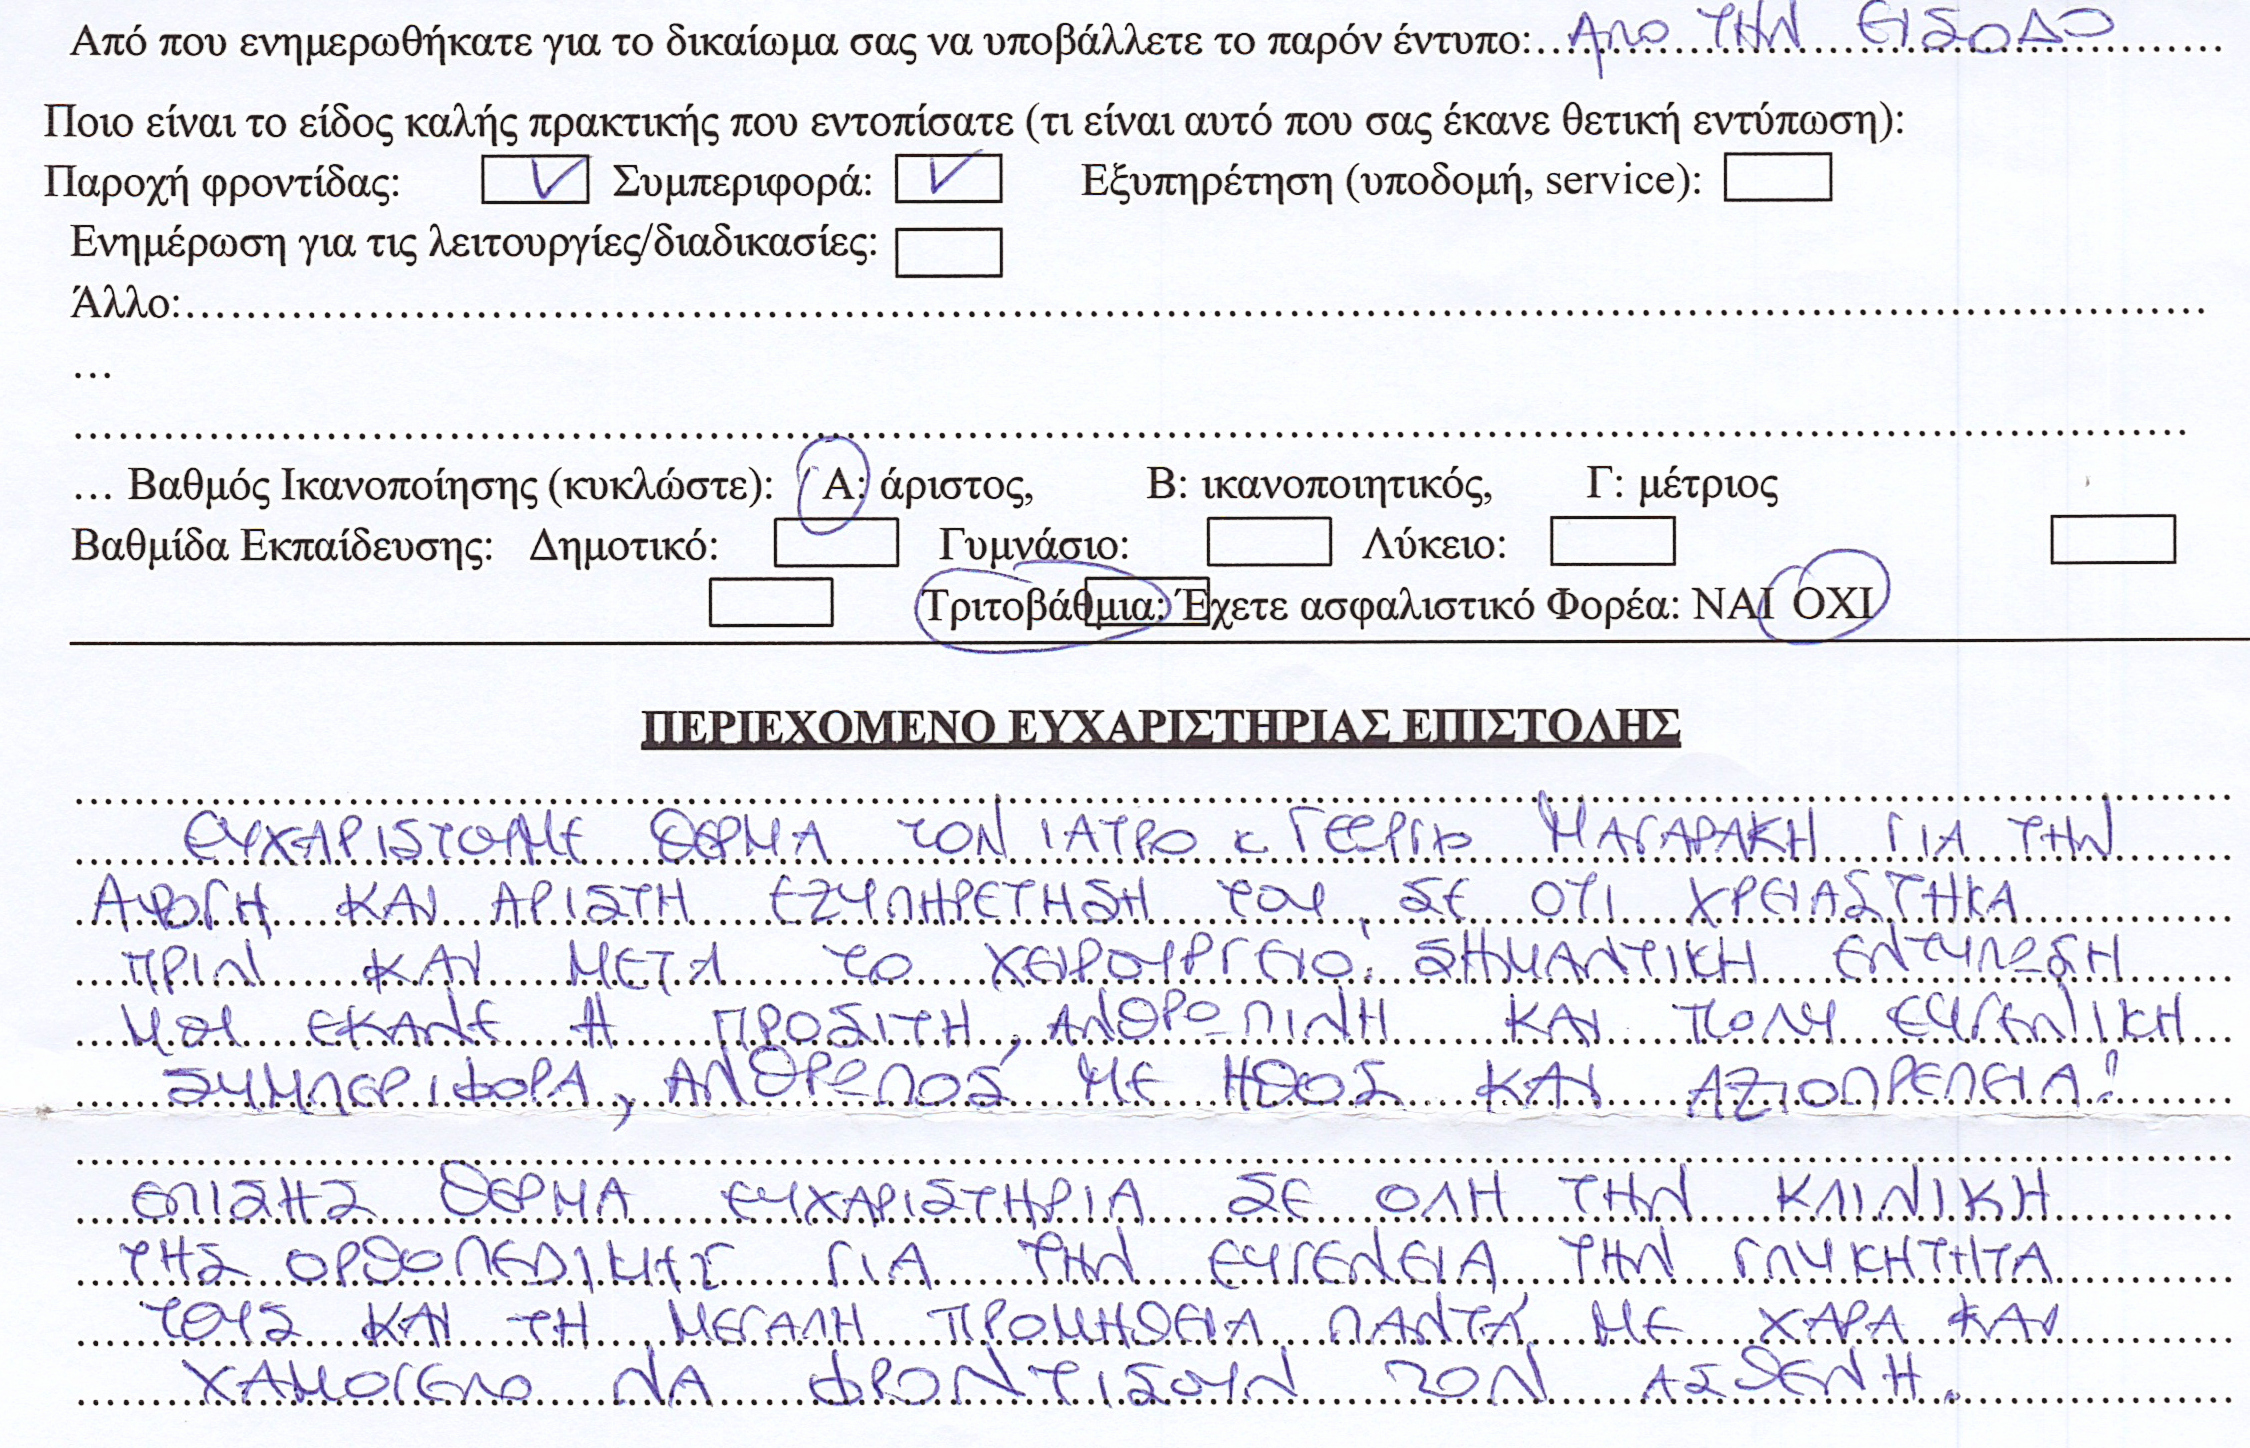 Από που ενημερωθήκατε για το δικαίωμα σας να υποβάλλετε το παρόν έντυπο: ΑΠΟ ΤΗΝ ΕΙΣΟΔΟ
Ποιο είναι το είδος καλής πρακτικής που εντοπίσατε (τι είναι αυτό που σας έκανε θετική εντύπωση):
Παροχή φροντίδας: Συμπεριφορά: Εξυπηρέτηση (υποδομή, service):
Ενημέρωση για τις λειτουργίες/διαδικασίες:
Άλλο:
…
… Βαθμός Ικανοποίησης (κυκλώστε): Α: άριστος, Β: ικανοποιητικός, Γ: μέτριος
Βαθμίδα Εκπαίδευσης: Δημοτικό: Γυμνάσιο: Λύκειο:
Τριτοβάθμια: Έχετε ασφαλιστικό Φορέα: ΝΑΙ ΟΧΙ
ΠΕΡΙΕΧΟΜΕΝΟ ΕΥΧΑΡΙΣΤΗΡΙΑΣ ΕΠΙΣΤΟΛΗΣ
ΕΥΧΑΡΙΣΤΟΥΜΕ ΘΕΡΜΑ ΤΟΝ ΙΑΤΡΟ κ ΓΕΩΡΓΙΟ ΜΑΓΑΡΑΚΗ ΓΙΑ ΤΗΝ
ΑΨΟΓΗ ΚΑΙ ΑΡΙΣΤΗ ΕΞΥΠΗΡΕΤΗΣΗ ΤΟΥ, ΣΕ ΟΤΙ ΧΡΕΙΑΣΤΗΚΑ
ΠΡΙΝ ΚΑΙ ΜΕΤΑ ΤΟ ΧΕΙΡΟΥΡΓΕΙΟ. ΣΗΜΑΝΤΙΚΗ ΕΝΤΥΠΩΣΗ
ΜΟΥ ΕΚΑΝΕ Η ΠΡΟΣΙΤΗ, ΑΝΘΡΩΠΙΝΗ ΚΑΙ ΠΟΛΥ ΕΥΓΕΝΙΚΗ
ΣΥΜΠΕΡΙΦΟΡΑ, ΑΝΘΡΩΠΟΣ ΜΕ ΗΘΟΣ ΚΑΙ ΑΞΙΟΠΡΕΠΕΙΑ!
ΕΠΙΣΗΣ ΘΕΡΜΑ ΕΥΧΑΡΙΣΤΗΡΙΑ ΣΕ ΟΛΗ ΤΗΝ ΚΛΙΝΙΚΗ
ΤΗΣ ΟΡΘΟΠΕΔΙΚΗΣ ΓΙΑ ΤΗΝ ΕΥΓΕΝΕΙΑ, ΤΗΝ ΓΛΥΚΗΤΗΤΑ
ΤΟΥΣ ΚΑΙ ΤΗ ΜΕΓΑΛΗ ΠΡΟΜΗΘΕΙΑ ΠΑΝΤΑ ΜΕ ΧΑΡΑ ΚΑΙ
ΧΑΜΟΓΕΛΟ ΝΑ ΦΡΟΝΤΙΣΟΥΝ ΤΟΝ ΑΣΘΕΝΗ.